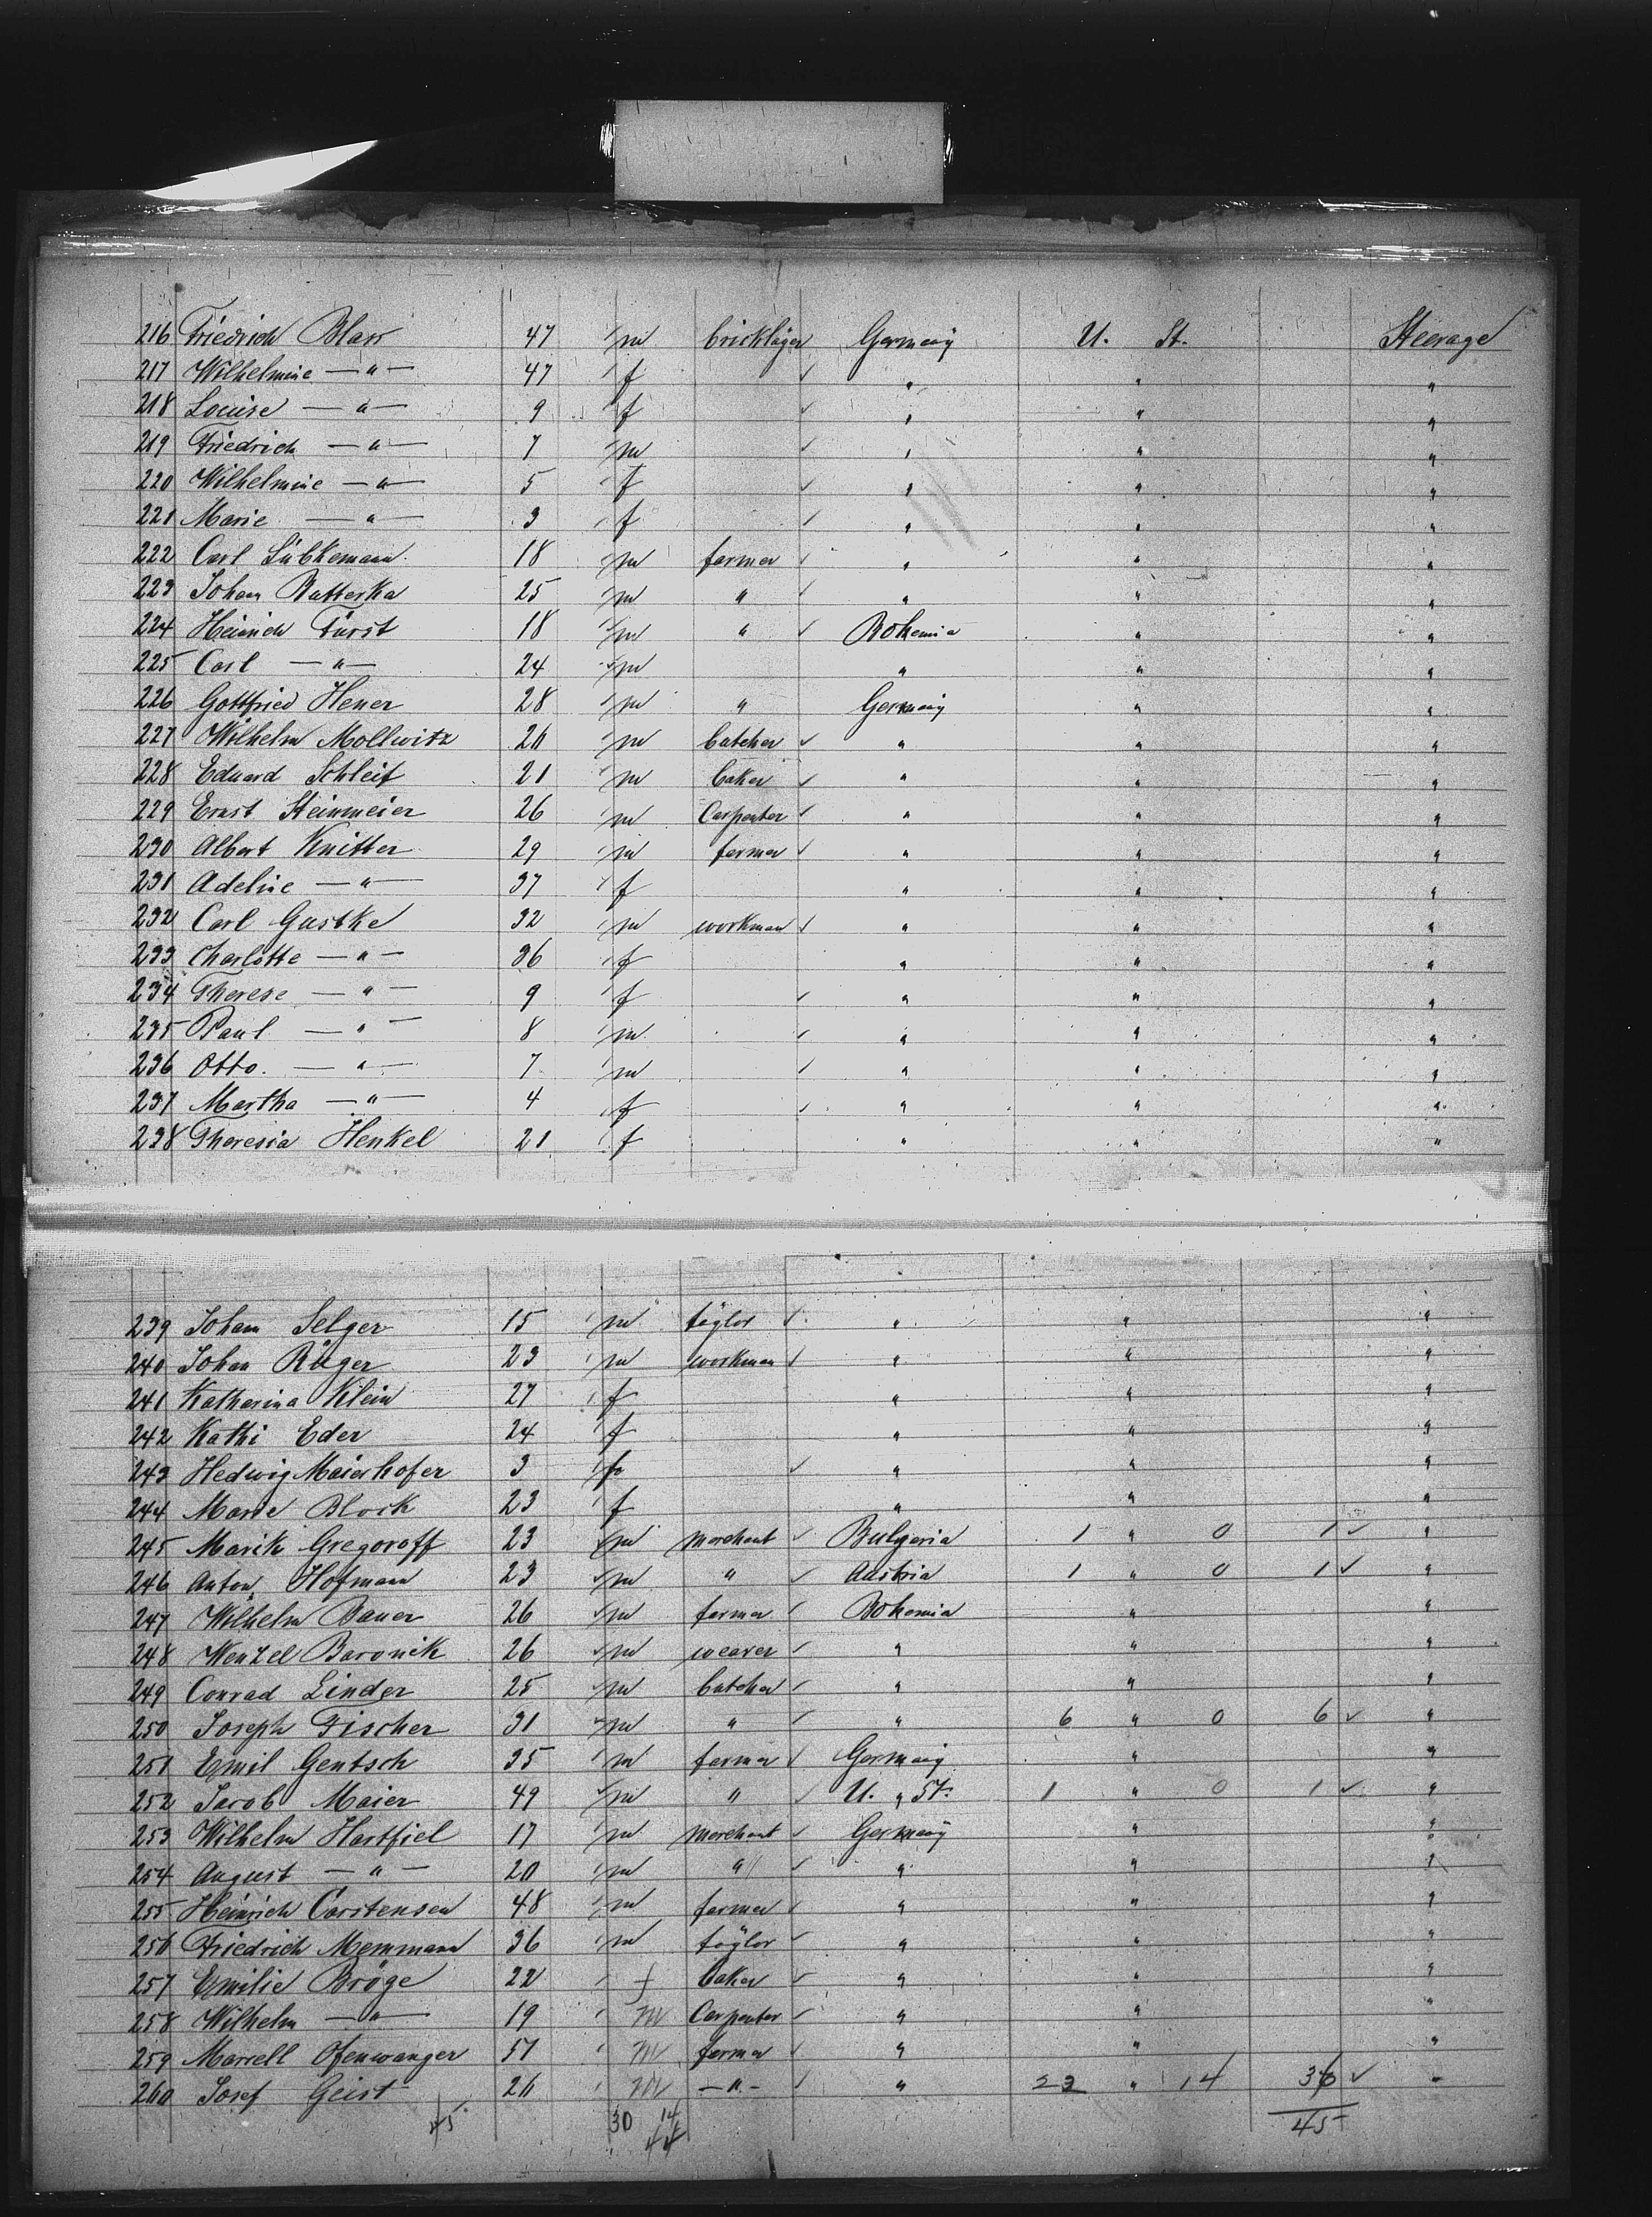 216 Friedrich Blass 47 m bricklayer Germany U. St. Steerage
217 Wilhelmine — " — 47 f " " "
218 Louise — " — 9 f " " "
219 Friedrich — " — 7 m " " "
220 Wilhelmine — " — 5 f " " "
221 Marie — " — 3 f " " "
222 Carl Lübkemann 18 m farmer " " "
223 Johann Batterka 25 m " " " "
224 Heinrich Fürst 18 m " Bohemia " "
225 Carl — " — 24 m " " "
226 Gottfried Hener 28 m " Germany " "
227 Wilhelm Mollwitz 20 m butcher " " "
228 Eduard Schleif 21 m baker " " "
229 Ernst Steinmeier 26 m Carpenter " " "
230 Albert Knitter 29 m farmer " " "
231 Adeline — " — 37 f " " "
232 Carl Gustke 32 m workman " " "
233 Charlotte — " — 36 f " " "
234 Therese — " — 9 f " " "
235 Paul — " — 8 m " " "
236 Otto. — " — 7 m " " "
237 Martha — " — 4 f " " "
238 Theresia Henkel 21 f " " "
239 Johann Selger 15 m taylor " " "
240 Johan Rüger 23 m workman " " "
241 Katherina Klein 27 f " " "
242 Kathi Eder 24 f " " "
243 Hedwig Maierhofer 3 f " " "
244 Marie Block 23 f " " "
245 Marik Gregoroff 23 m merchant Bulgaria 1 " 0 1 "
246 Anton Hofmann 23 m " Austria 1 " 0 1 "
247 Wilhelm Bauer 26 m farmer Bohemia " "
248 Wenzel Baronik 26 m weaver " " "
249 Conrad Linder 25 m butcher " " "
250 Joseph Fischer 31 m " " 6 " 0 6 "
251 Emil Gentsch 35 m farmer Germany " "
252 Jacob Maier 49 m " U. " St. 1 " 0 1 "
253 Wilhelm Hartfiel 17 m merchant Germany " "
254 August — " — 20 m " " " "
255 Heinrich Carstensen 48 m farmer " " "
256 Friedrich Memmann 36 m taylor " " "
257 Emilie Bröge 22 f baker " " "
258 Wilhelm — " — 19 m Carpenter " " "
259 Marzell Ofenwanger 51 m farmer " " "
260 Josef Geist 20 m — " — " 22 " 14 36 "
45 30 14 45
44